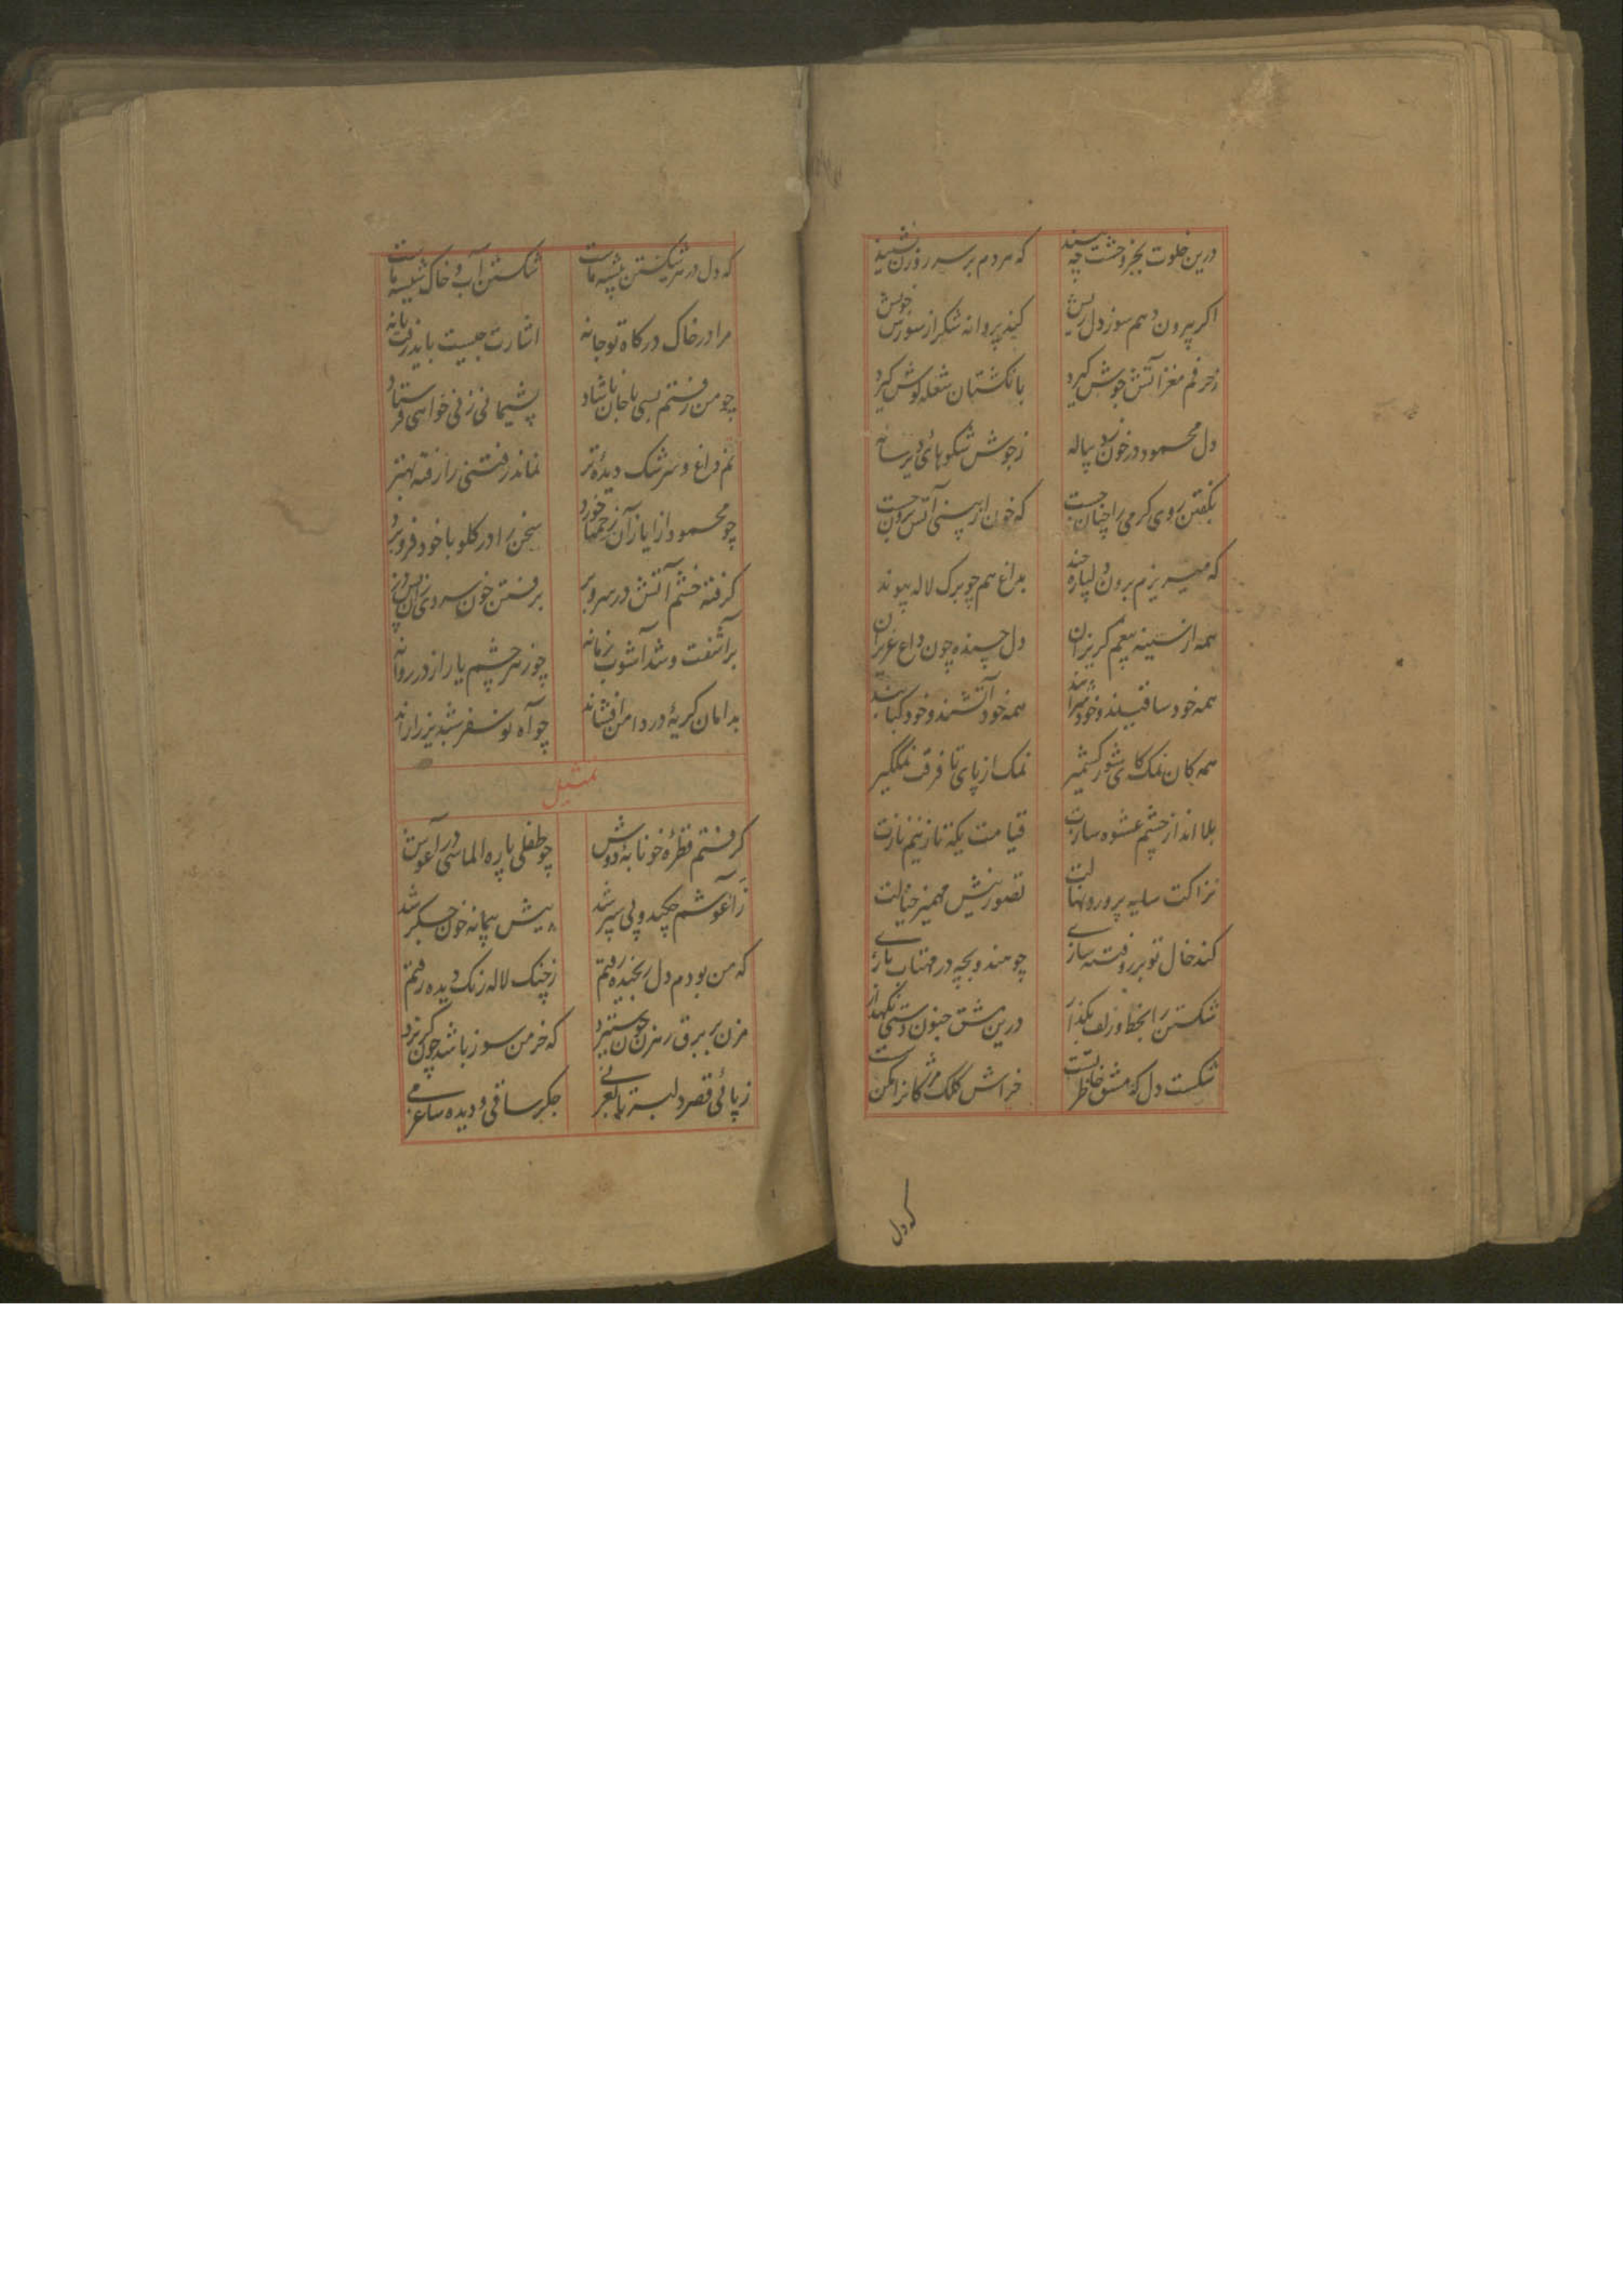 درین خلوت بجز وحشت چه بیند که مردم بر سر روزن نشیند
اکر بیرون دهم سوز دل ریش کند پروانه شکر از سوزش خویش
زحرفم مغز آتش جوش کیرد بانکشتان شعله کوش کیرد
دل محمود در خون زد پیاله زجوش شکوهای دیرساله
بکفتن روی کرمی را چنان جست که خون از بینی آتش برون جست
که میریزم برون دلپاره چند بداغ هم چو برک لاله پیوند
همه از سینه بیغم کریزان دل چسپنده چون داغ عزیزان
همه خود ساقیند و خود شرابند همه خود آتشند و خود کبابند
همه کان نمک کای شور کشمیر نمک از پای تا فرقت نمکگیر
بلا انداز چشم عشوه سازت قیامت یکه تاز نیم نازت
نزاکت سایه پرورد نهالت تصور بینش مهمیز خیالت
کند خال تو بر رو فتنه سازی چو هندو بچه در مهتاب بازی
شکستن را بخط و زلف بکذار درین مشق جنون دستی نکهدار
شکست دل که مشق خاطر تست خراش کلک مژکانرا مکن
که دل
که دل در هر شکستن پیشه ماست شکستن آب و خاک شیشه ماست
مرا در خاک درکاه تو جا نه اشارت چیست باید رفت یا نه
چو من رفتم بسی با جان ناشاد پشیمانی زنی خواهی فرستاد
نم داغ و سرشک دیده تر نماند رفتنی را رفته بهتر
چو محمود از ایاز آن زخمها خورد سخن را در کلو با خود فرو برد
کرفته خشم آتش در سر و بر برفتن خون سردی
برآشفت و شد آشوب زمانه چو زهر چشم یار از در روانه
بدامان کریه درد دامن افشاند چو آه تو سفر شبدیز را راند
تمثیل
کرفتم قطره خونابه دوش چو طفلی پاره الماس در آغوش
ز آغوشم چکید و پی سپر شد به پیش پیمانه خون جکر شد
که من بودم دل رنجیده رفتم زچنک لاله رنک دیده رفتم
مزن بر برق رهزن چون ستیزد که خرمن سوز باشد چون کریزد
زپائی قصر دلبسته جکر ساقی و دیده ساغر می